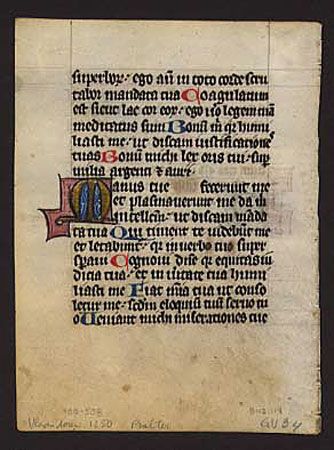 superbor· ego aū in toto corde scru
tabor mandata tua Coagulatum
est sicut lac cor eoꝝ· ego v̄o legem tuā
meditatus sum Bonū m̄ q̄ humi
liasti me· ut discam iustificatōnes
tuas Bonū michi lex oris tui· sup
milia argenti & auri·
Manus tue fecerunt me
et plasmaverunt me da m̄
intellectū· ut discam mādā
ta tua Qui timent te videbūt me
et letabunt᷑· quia in verba tua super
speravi Cognovi dn̄e q̄ equitas iu
dicia tua· et in v̄itate tua humi
liasti me Fiat mīa tua ut conso
letur me· sc̄dm eloquiū tuū servo tuo
Veniant michi miserationes tue
Vermandois 1250 Psalter
GVB4